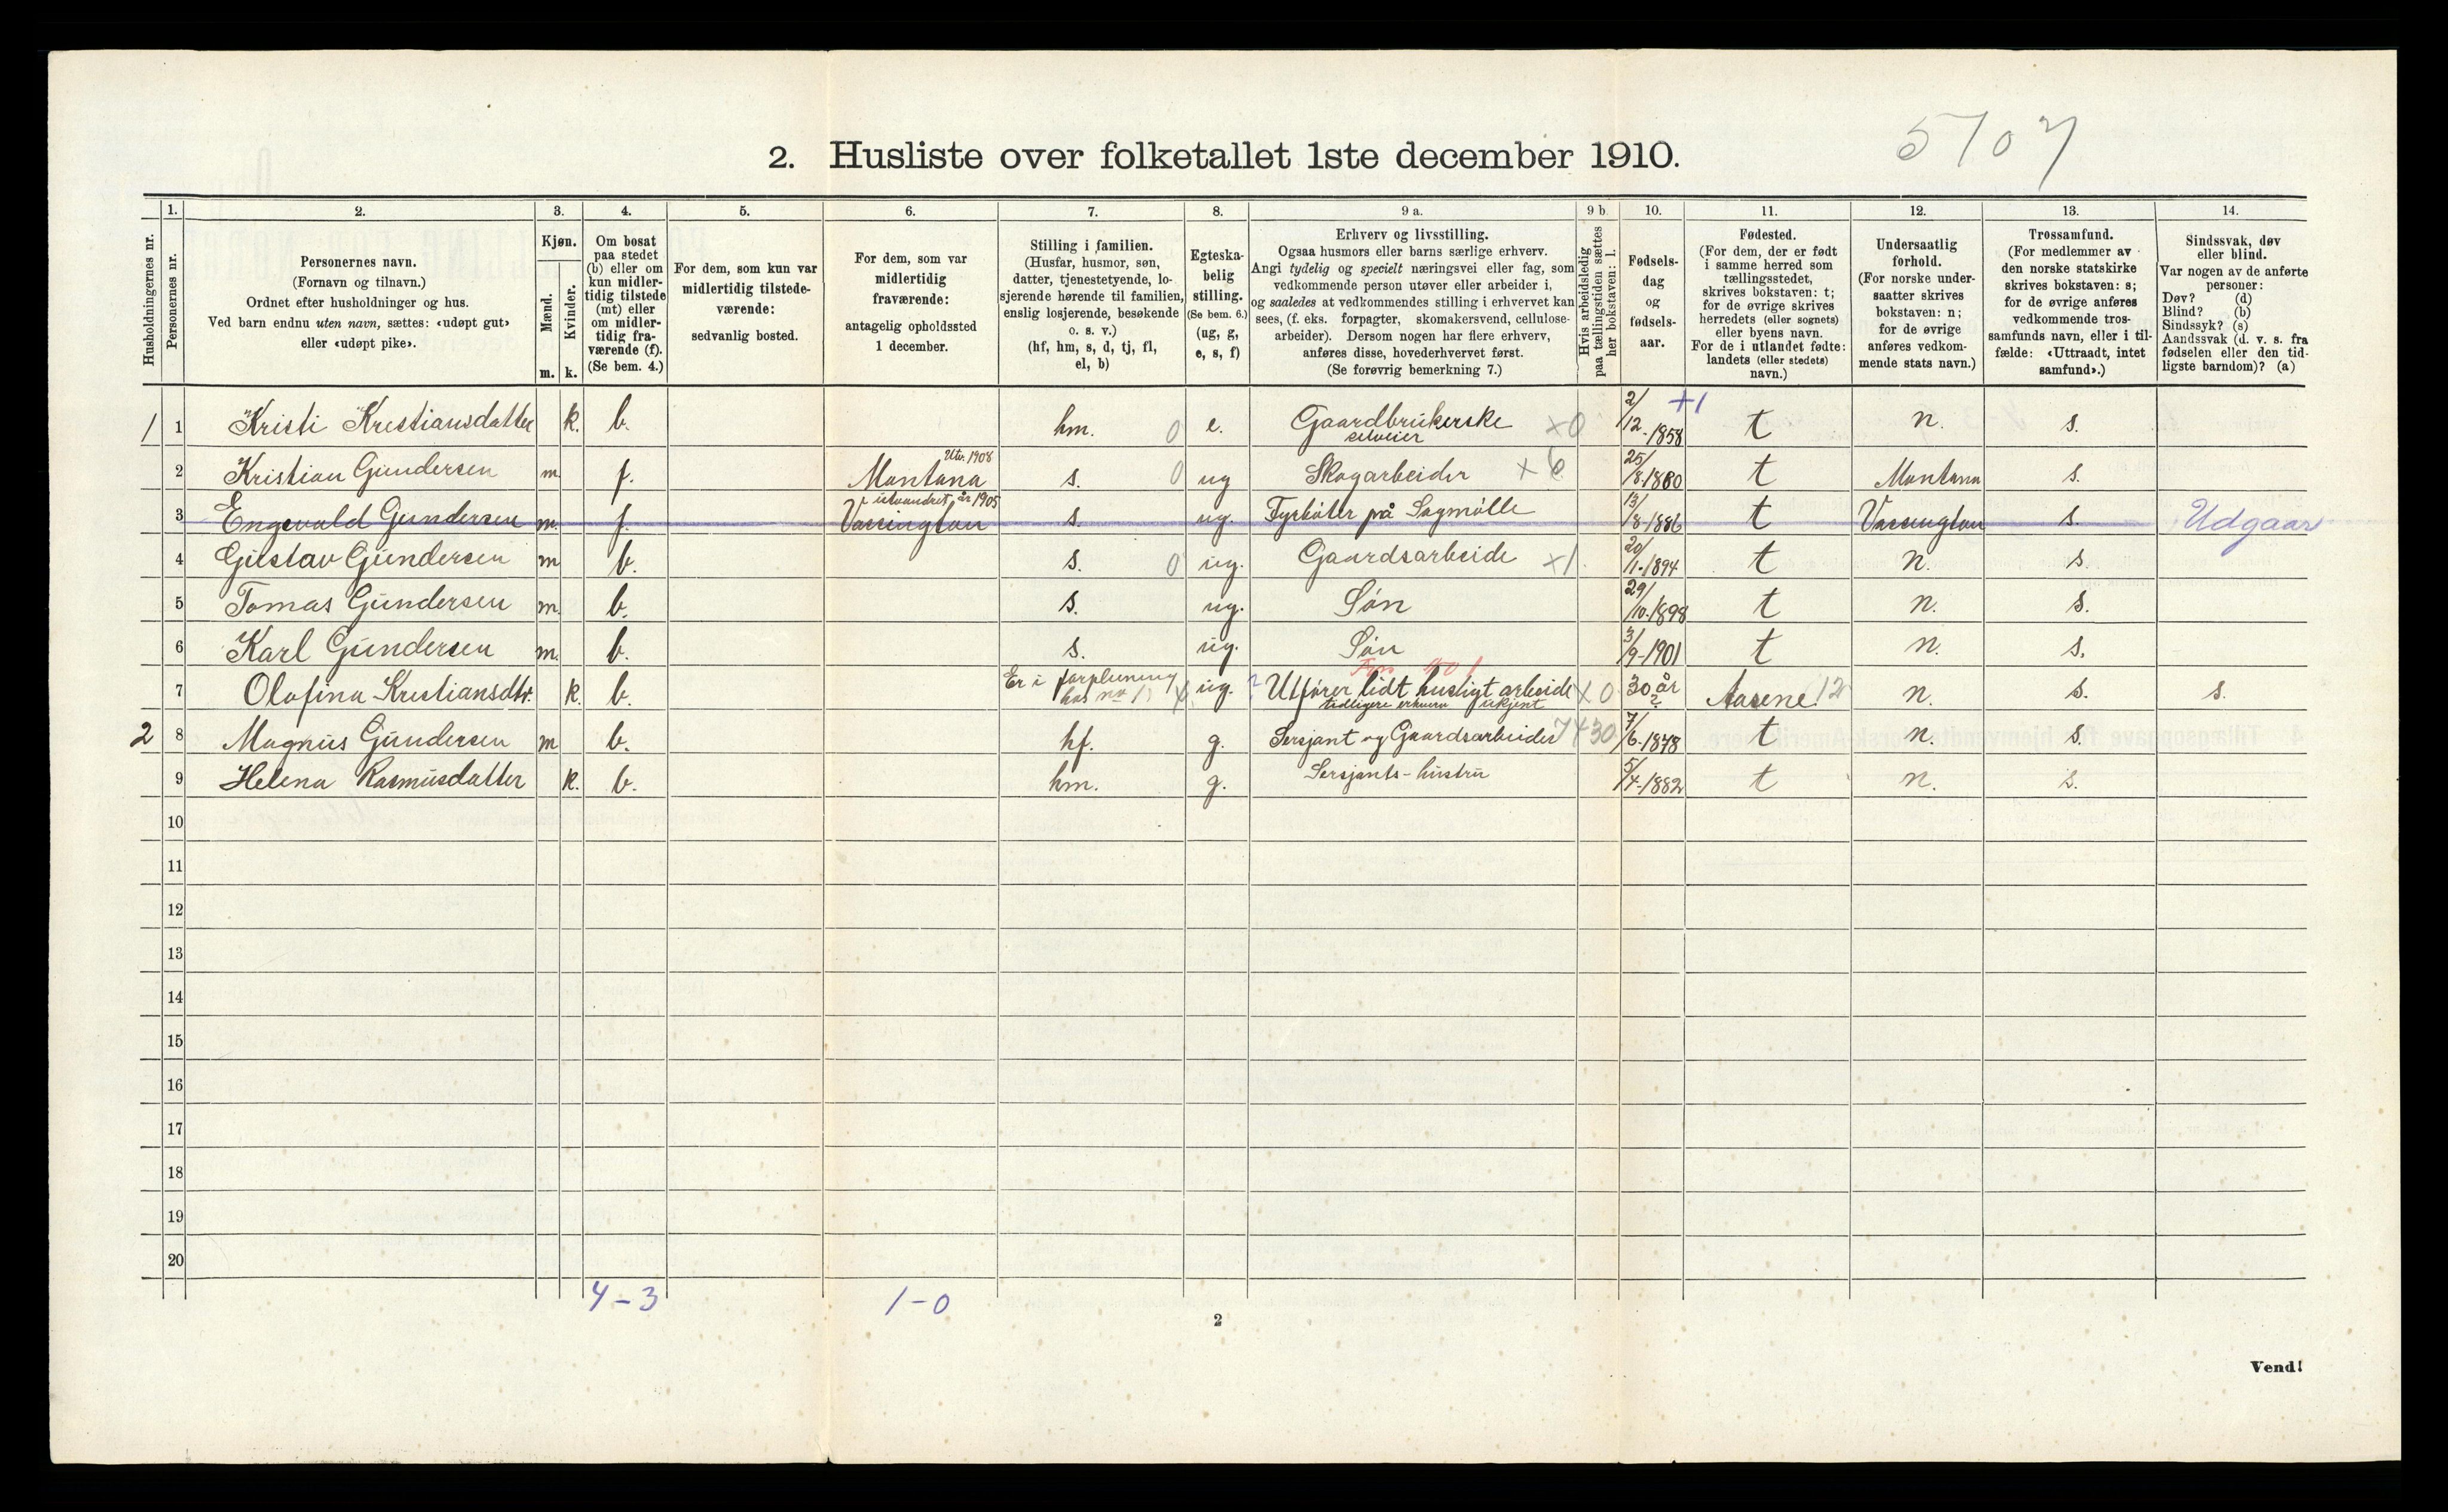 5707
2. Husliste over folketallet 1ste december 1910.
Husholdningernes nr.
1. Personernes nr.
2. Personernes navn. (Fornavn og tilnavn.) Ordnet efter husholdninger og hus. Ved barn endnu uten navn, sættes: «udøpt gut» eller «udøpt pike».
3. Kjøn. Mænd. m. Kvinder. k.
4. Om bosat paa stedet (b) eller om kun midlertidig tilstede (mt) eller om midlertidig fraværende (f). (Se bem. 4.)
5. For dem, som kun var midlertidig tilstedeværende: sedvanlig bosted.
6. For dem, som var midlertidig fraværende: antagelig opholdssted 1 december.
7. Stilling i familien. (Husfar, husmor, søn, datter, tjenestetyende, losjerende hørende til familien, enslig losjerende, besøkende o. s. v.) (hf, hm, s, d, tj, fl, el, b)
8. Egteskabelig stilling. (Se bem. 6.) (ug, g, e, s, f)
9 a. Erhverv og livsstilling. Ogsaa husmors eller barns særlige erhverv. Angi tydelig og specielt næringsvei eller fag, som vedkommende person utøver eller arbeider i, og saaledes at vedkommendes stilling i erhvervet kan sees, (f. eks. forpagter, skomakersvend, cellulosearbeider). Dersom nogen har flere erhverv, anføres disse, hovederhvervet først. (Se forøvrig bemerkning 7.)
9 b. Hvis arbeidsledig paa tællingstiden sættes her bokstaven: l.
10. Fødselsdag og fødselsaar.
11. Fødested. (For dem, der er født i samme herred som tællingsstedet, skrives bokstaven: t; for de øvrige skrives herredets (eller sognets) eller byens navn. For de i utlandet fødte: landets (eller stedets) navn.)
12. Undersaatlig forhold. (For norske undersaatter skrives bokstaven: n; for de øvrige anføres vedkommende stats navn.)
13. Trossamfund. (For medlemmer av den norske statskirke skrives bokstaven: s; for de øvrige anføres vedkommende trossamfunds navn, eller i tilfælde: «Uttraadt, intet samfund».)
14. Sindssvak, døv eller blind. Var nogen av de anførte personer: Døv? (d) Blind? (b) Sindssyk? (s) Aandssvak (d. v. s. fra fødselen eller den tidligste barndom)? (a)
1 1 Kristi Kristiansdatter k. b. hm. 0 e. Gaardbrukerske selveier x0 2/12-1858 +1 t n. s.
2 Kristian Gundersen m f. Utv. 1908 Montana s. 0 ug Skogarbeider x6 25/8.1880 t Montana s.
3 Engevald Gundersen m. f. utvandret år 1905 Vassington s. ug. Fyrbøter på Sagmølle 13/8-1886 t Vassington s. Udgaar
4 Gustav Gundersen m b. s. 0 ug. Gaardsarbeide x1. 20/1-1894 t n. s.
5 Tomas Gundersen m. b. s. ug. Søn 29/10-1898 t n. s.
6 Karl Gundersen m. b. s. ug. Søn 3/9-1901 t n. s.
7 Olofina Kristiansdtr. k. b. Er i forpleining hos no 1 x ug. ? Utfører lidt husligt arbeide tidligere erhverv ukjent x0 30 år ? Aasene 12 n. s. s.
2 8 Magnus Gundersen m b. hf. g. Sersjant og Gaardsarbeider 7430 7/6-1878 t n. s.
9 Helena Rasmusdatter k. b. hm. g. Sersjants-hustru 5/4-1882 t n. s.
10
11
12
13
14
15
16
17
18
19
20
4-3 1-0
2
Vend!